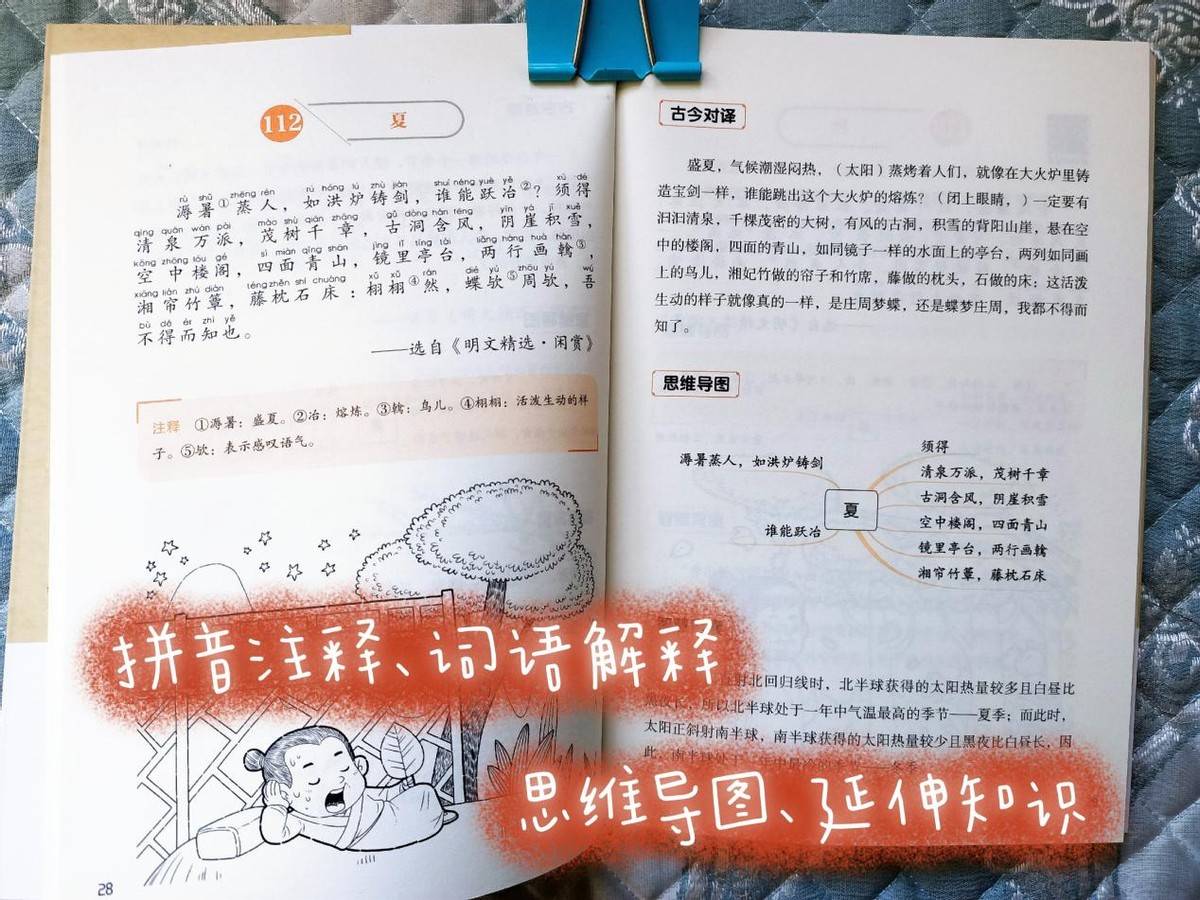 112 夏
rù shǔ zhēng rén rú hóng lú zhù jiàn shuí néng yuè yě xū dé
溽暑①蒸人，如洪炉铸剑，谁能跃冶②？须得
qīng quán wàn pài mào shù qiān zhāng gǔ dòng hán fēng yīn yá jī xuě
清泉万派，茂树千章，古洞含风，阴崖积雪，
kōng zhōng lóu gé sì miàn qīng shān jìng lǐ tíng tái liǎng háng huà hàn
空中楼阁，四面青山，镜里亭台，两行画鶾③，
xiāng lián zhú diàn téng zhěn shí chuáng xǔ xǔ rán dié yú zhōu yú wú
湘帘竹簟，藤枕石床：栩栩④然，蝶欤⑤周欤，吾
bù dé ér zhī yě
不得而知也。
——选自《明文精选·闲赏》
注释 ①溽暑：盛夏。②冶：熔炼。③鶾：鸟儿。④栩栩：活泼生动的样
子。⑤欤：表示感叹语气。
28
古今对译
盛夏，气候潮湿闷热，（太阳）蒸烤着人们，就像在大火炉里铸
造宝剑一样，谁能跳出这个大火炉的熔炼？（闭上眼睛，）一定要有
汩汩清泉，千棵茂密的大树，有风的古洞，积雪的背阳山崖，悬在空
中的楼阁，四面的青山，如同镜子一样的水面上的亭台，两列如同画
上的鸟儿，湘妃竹做的帘子和竹席，藤做的枕头，石做的床；这活泼
生动的样子就像真的一样，是庄周梦蝶，还是蝶梦庄周，我都不得而
知了。
思维导图
溽暑蒸人，如洪炉铸剑
谁能跃冶
夏
须得
清泉万派，茂树千章
古洞含风，阴崖积雪
空中楼阁，四面青山
镜里亭台，两行画鶾
湘帘竹簟，藤枕石床
射北回归线时，北半球获得的太阳热量较多且白昼比
所以北半球处于一年中气温最高的季节——夏季；而此时，
太阳正斜射南半球，南半球获得的太阳热量较少且黑夜比白昼长，因
此，南半球处于一年中最冷的季节——冬季
拼音注释、词语解释
思维导图、延伸知识